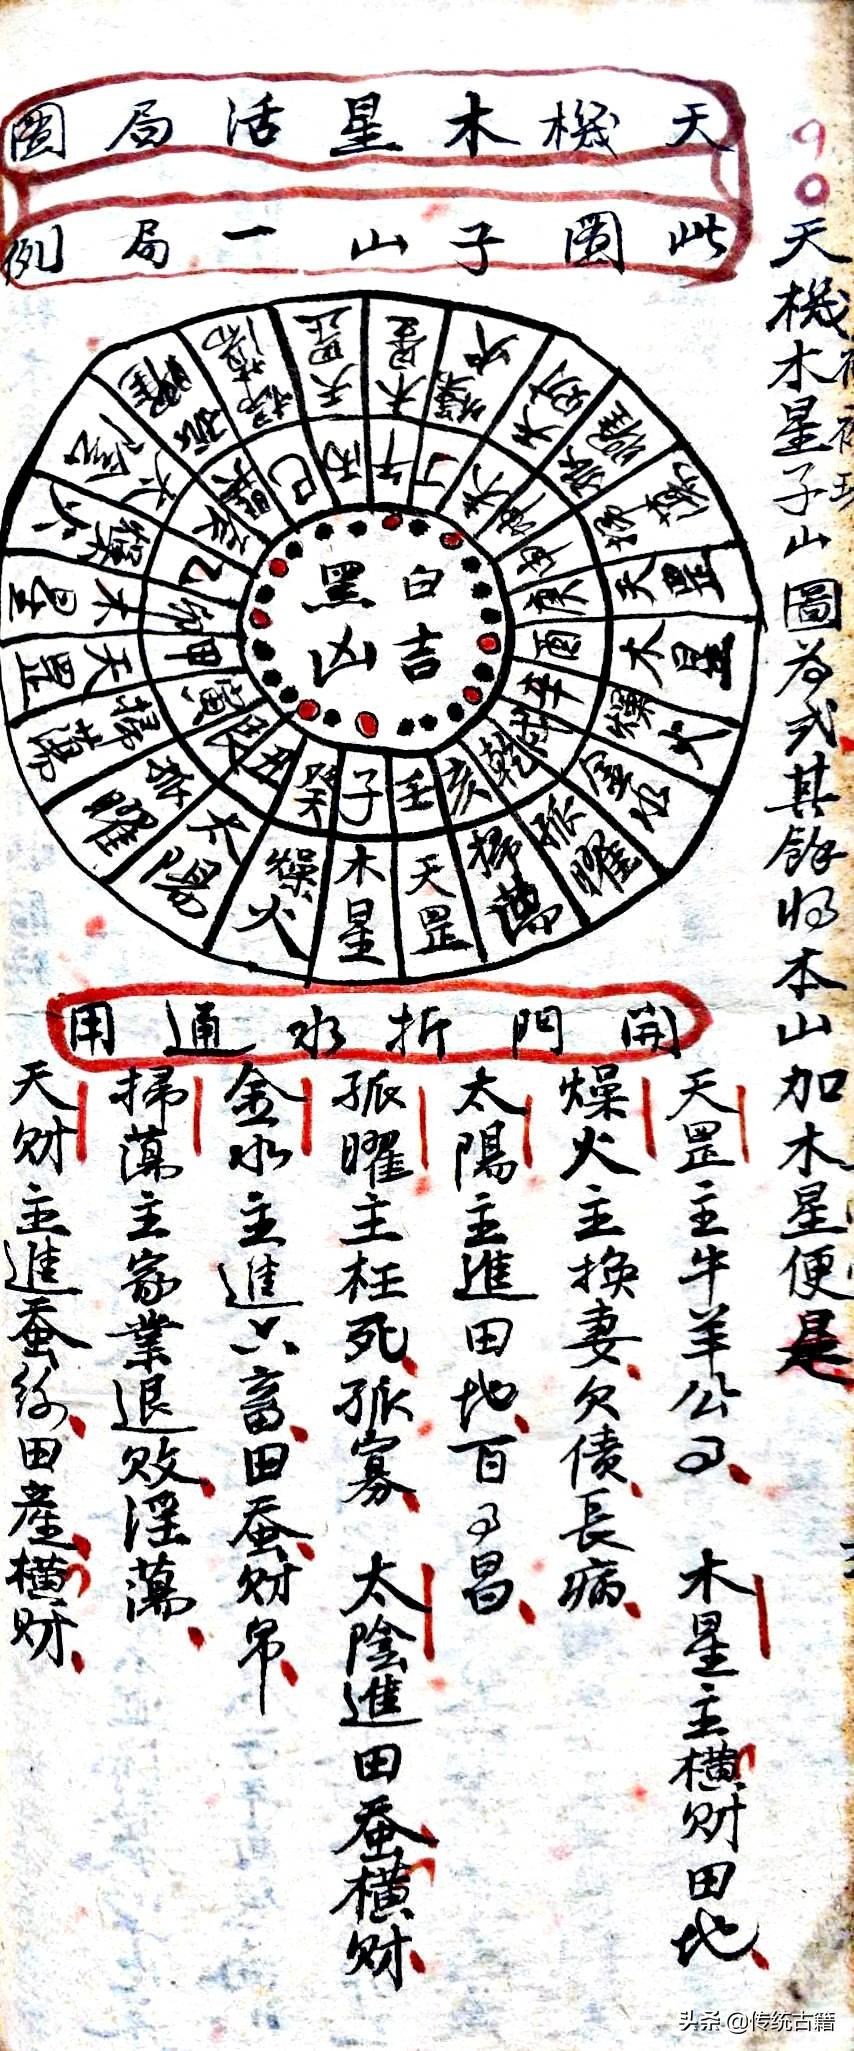 90
天機木星子山圖為式其餘將本山加木星便是
天機木星活局圖
此圖子山一局例
白吉
黑凶
子
壬
亥
乾
戌
辛
酉
庚
申
丁
午
丙
巳
巽
乙
卯
甲
寅
艮
丑
癸
木星
天罡
掃蕩
孤曜
金水
燥火
木星
天罡
掃蕩
孤曜
天財
燥火
木星
天罡
掃蕩
孤曜
太陰
燥火
木星
天罡
掃蕩
孤曜
太陽
燥火
開門折水通用
天罡主牛羊公事 木星主橫財田地
燥火主換妻欠債長病
太陽主進田地百事昌
孤曜主枉死孤寡 太陰進田蚕橫財
金水主進六畜田蚕財帛
掃蕩主家業退敗淫蕩
天財主進蚕絲田產橫財
头条 @传统古籍